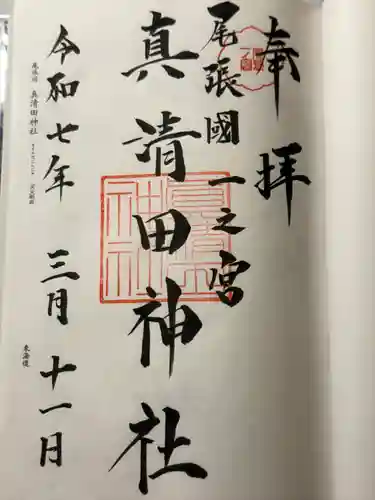 奉拝
尾張國一之宮
真清田神社
令和七年 三月 十一日
尾張國 真清田神社
東海道